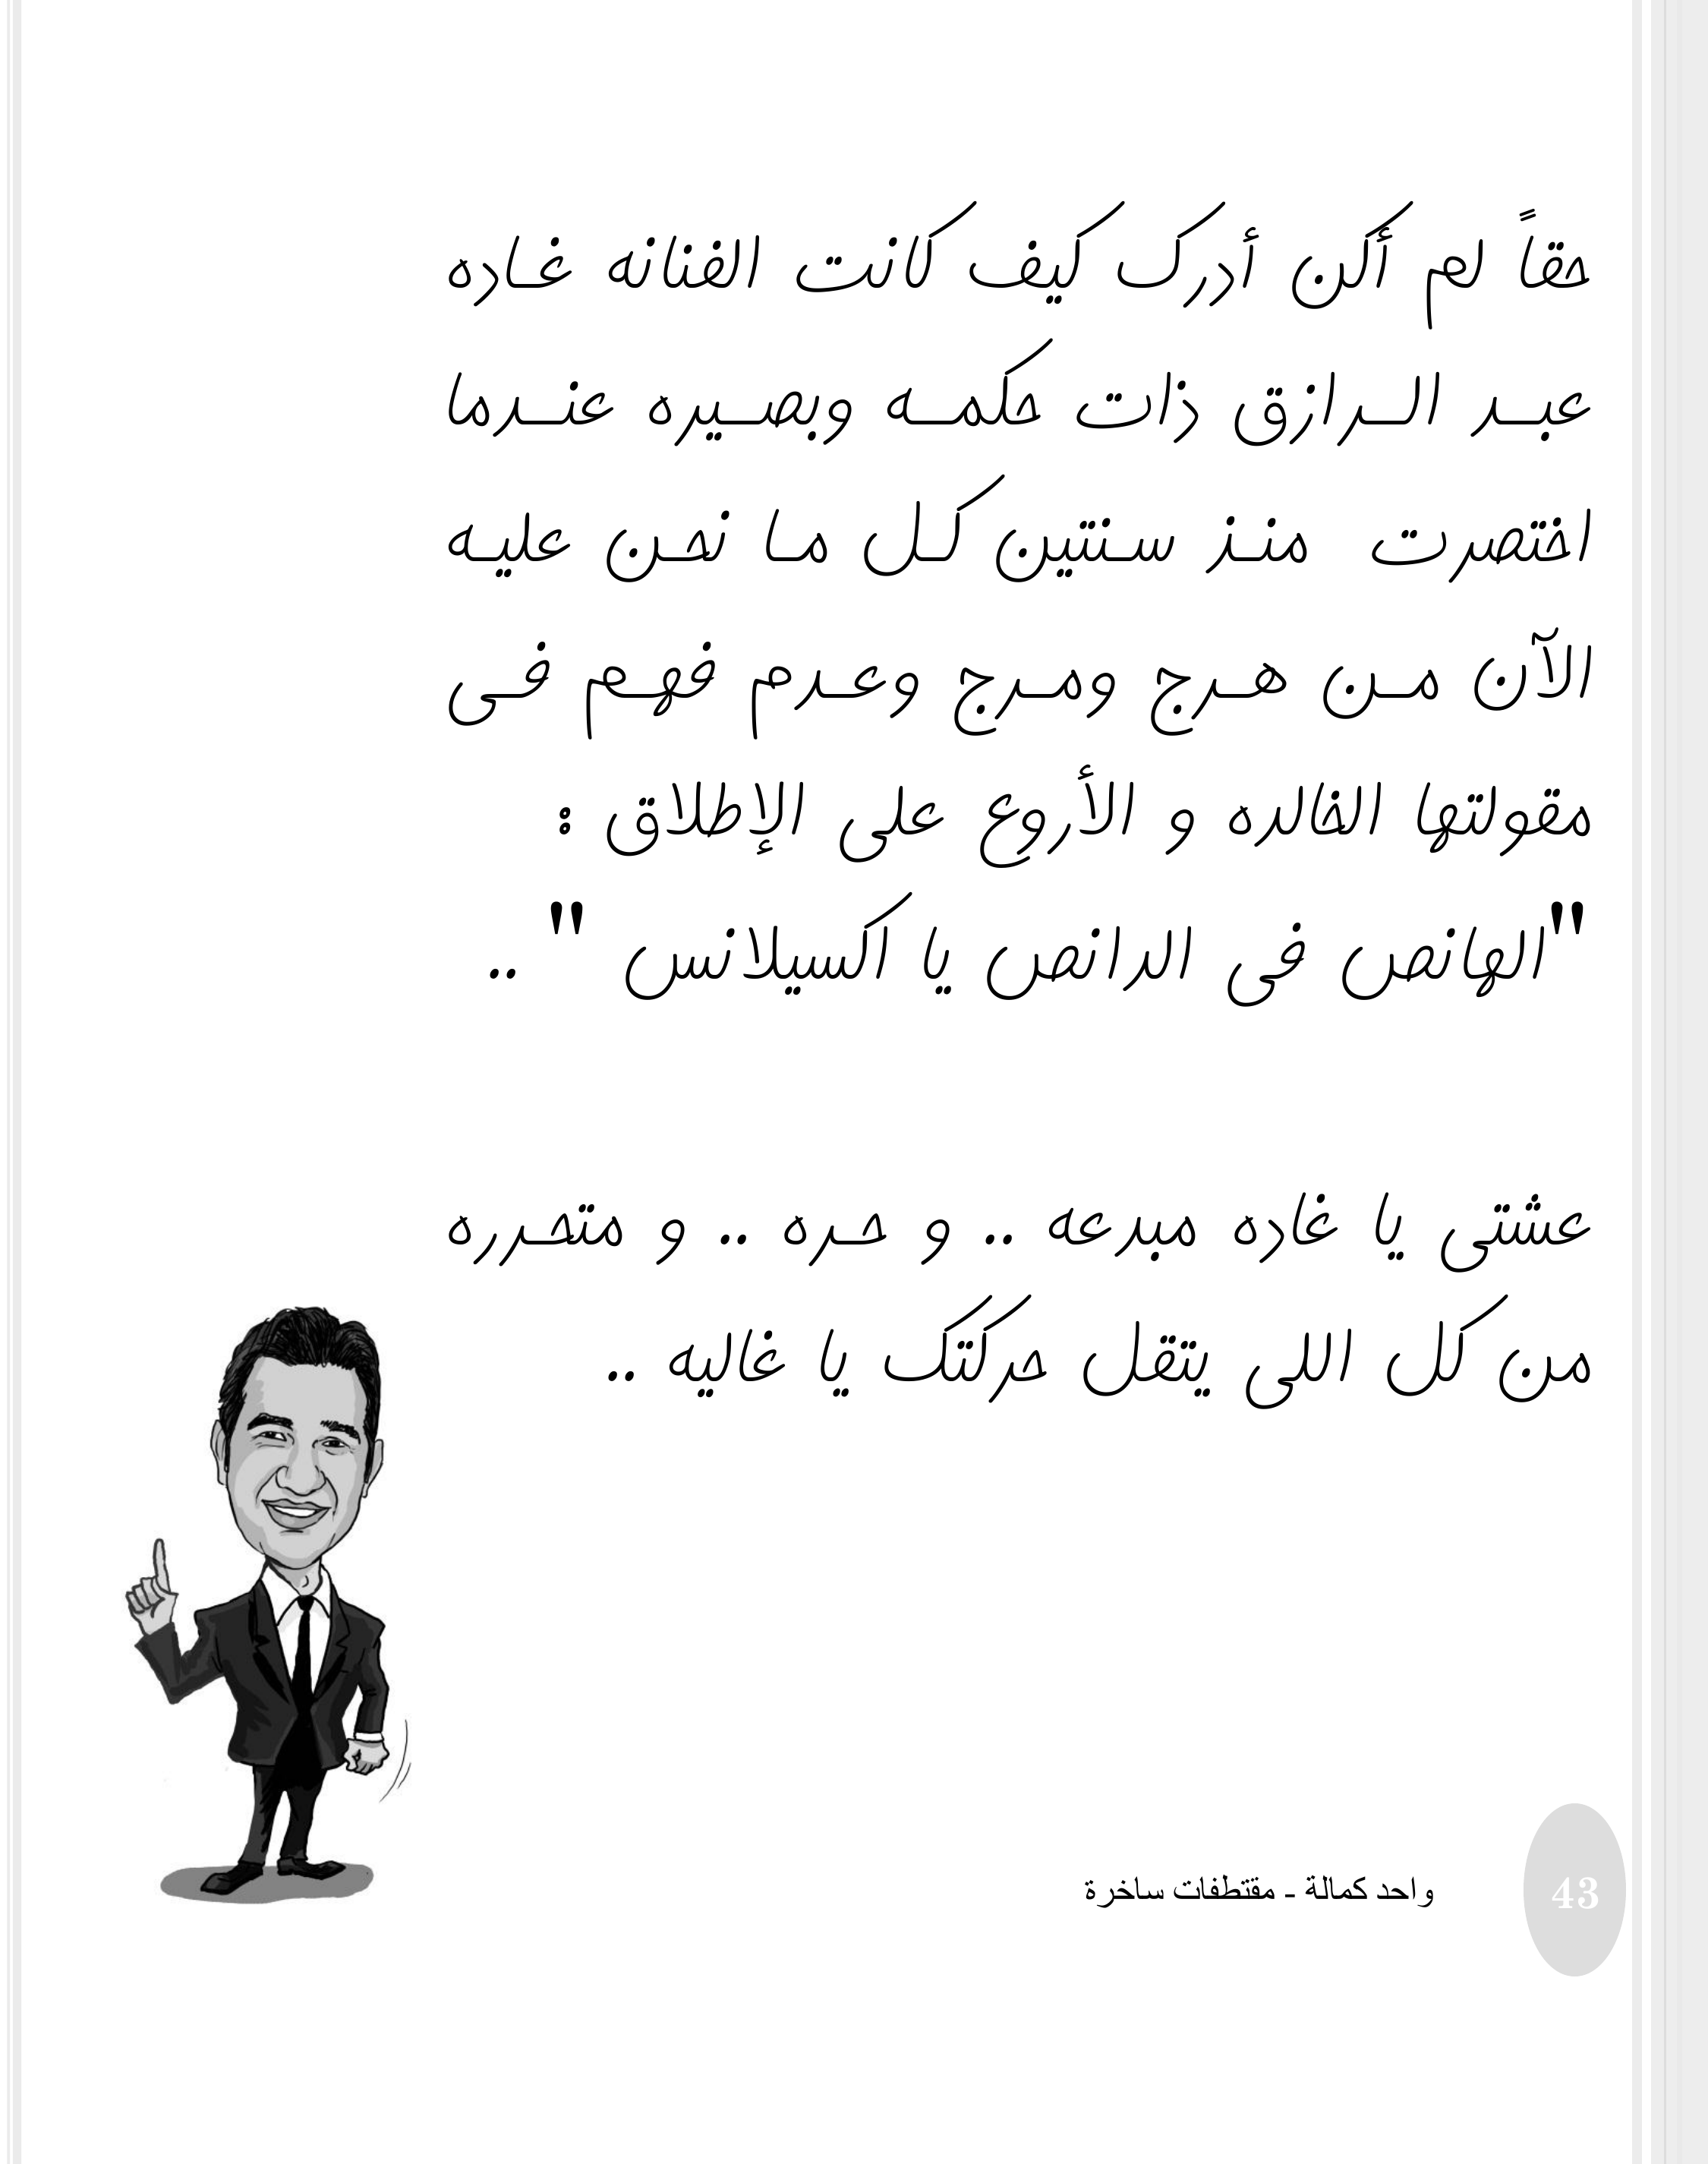 حقاً لم أكن أدرك كيف كانت الفنانه غاده
عبد الرازق ذات حكمه وبصيره عندما
اختصرت منذ سنتين كل ما نحن عليه
الآن من هرج ومرج وعدم فهم فى
مقولتها الخالده و الأروع على الإطلاق :
"الهانص فى الدانص يا اكسيلانس " ..
عشتى يا غاده مبدعه .. و حره .. و متحرره
من كل اللى يتقل حركتك يا غاليه ..
واحد كمالة - مقتطفات ساخرة
43